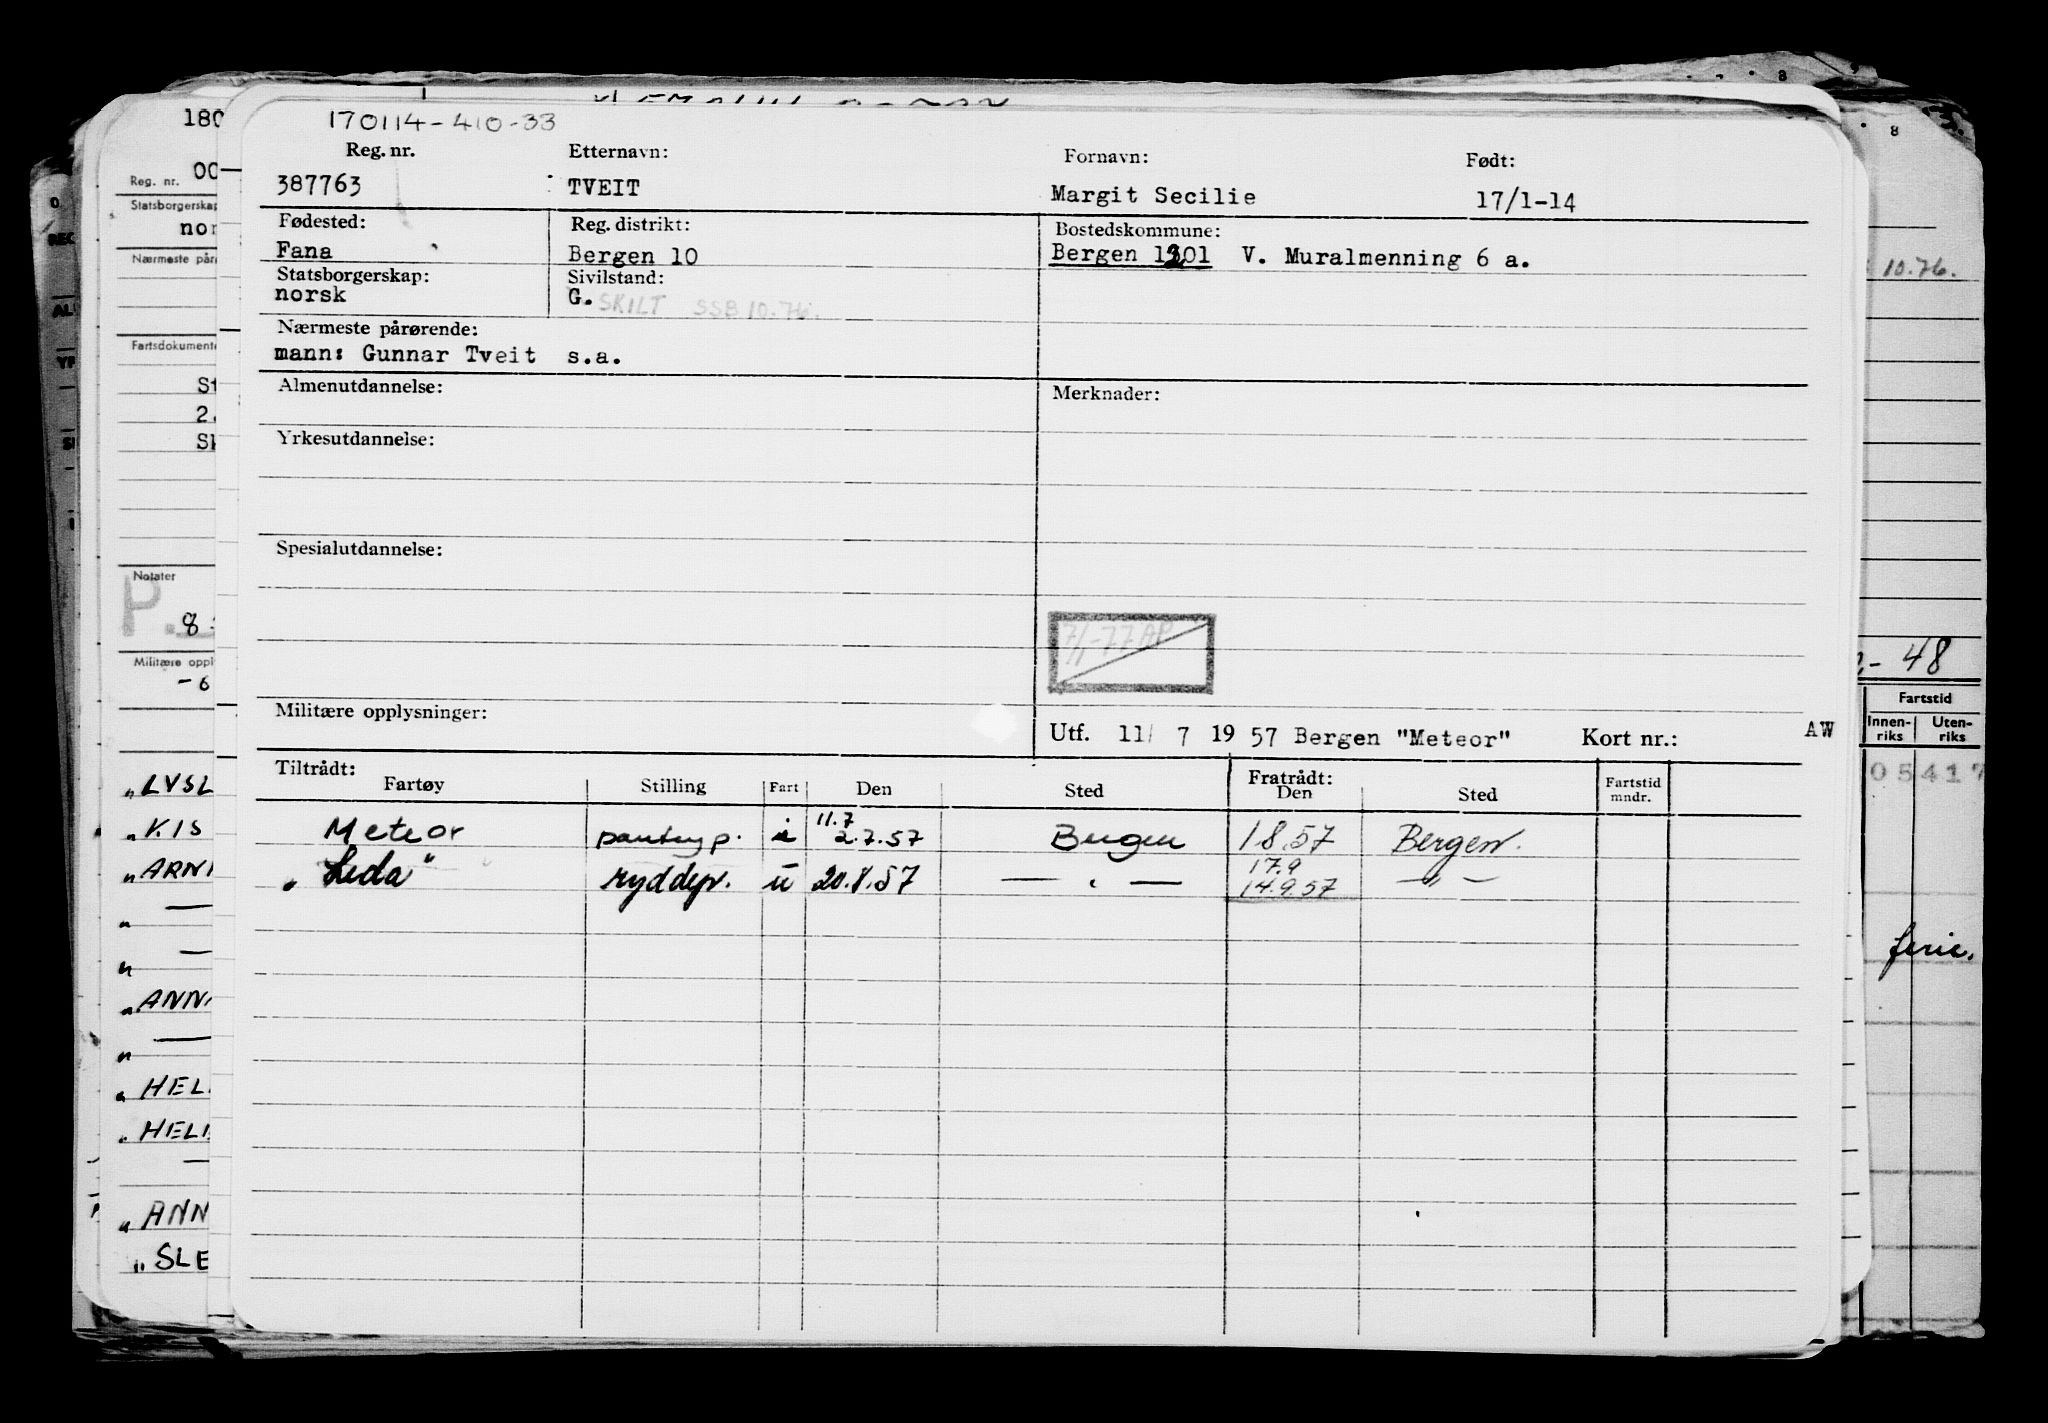 170114-410-33
Reg. nr. Etternavn: Fornavn: Født:
387763 TVEIT Margit Secilie 17/1-14
Fødested: Reg. distrikt: Bostedskommune:
Fana Bergen 10 Bergen 1301 V. Muralmenning 6 a.
Statsborgerskap: Sivilstand:
norsk G. SKILT SSB 10.76.
Nærmeste pårørende:
mann: Gunnar Tveit s.a.
Almenutdannelse: Merknader:
Yrkesutdannelse:
Spesialutdannelse:
7/1-77 AP
Militære opplysninger:
Utf. 11/ 7 19 57 Bergen "Meteor" Kort nr.: AW
Tiltrådt: Fratrådt:
Fartøy Stilling Fart Den Sted Den Sted Fartstid mndr.
11.7
Meteor pantryp. i 2.7.57 Bergen 1.8.57 Bergen.
17.9
"Leda" ryddepr. u 20.8.57 — " — 14.9.57 — " —
180
Reg. nr. 00
Statsborgerskap
nor
Nærmeste pår
Fartsdokumente
St
2.
Sk
Notater
P.
8
Militære oppl
-6
"LYSL
"KIS
"ARNI
"
"
"ANN
"
"HEL
"HELI
"ANN
"SLE
8
8
10.76.
- 48
Fartstid
Innen-riks Uten-riks
05417
ferie.